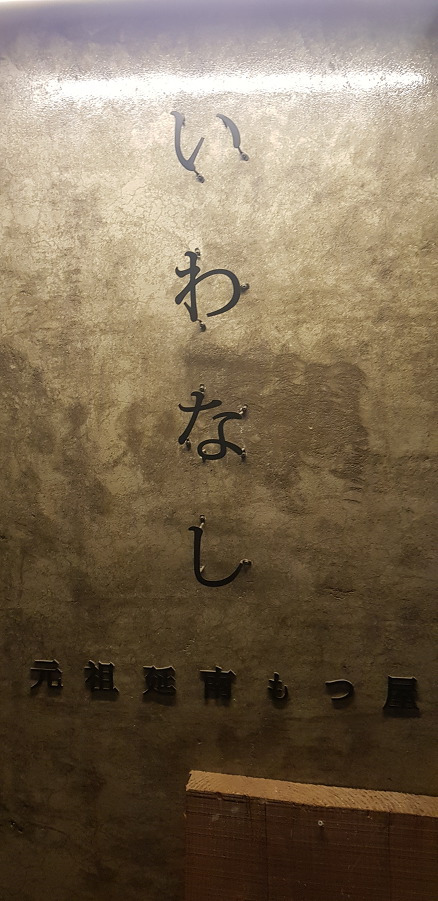 いわなし
元祖延南もつ屋